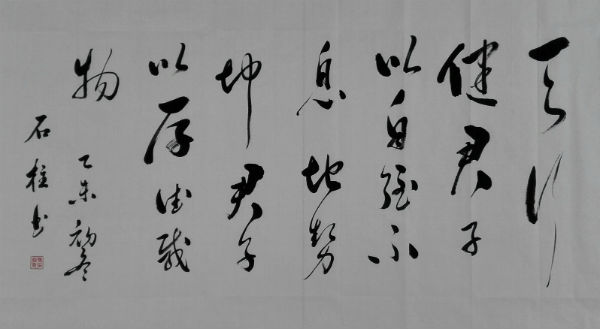 天行
健君子
以自强不
息地势
坤君子
以厚德载
物
乙未初冬
石柱书